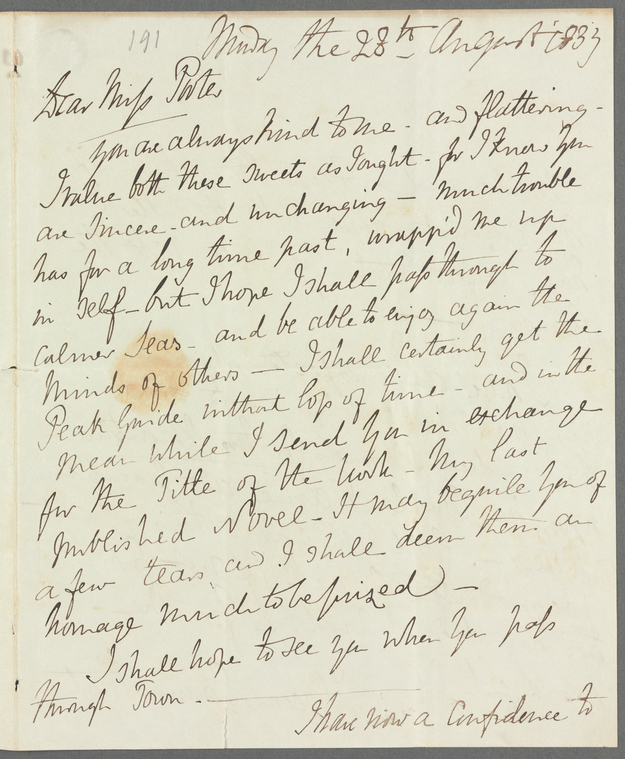 191
Monday the 28th August 1837
Dear Miss Porter
you are always kind to me - and flattering -
I value both these sweets as I ought - for I know you
are sincere - and unchanging - much trouble
has for a long time past, wrapp'd me up
in self - but I hope I shall pass through to
calmer seas - and be able to enjoy again the
minds of others - I shall certainly get the
Peak Guide without loss of time - and in the
mean while I send you in exchange
for the Title of the work - my last
published Novel - It may beguile you of
a few tears, and I shall deem them an
homage much to be prized -
I shall hope to see you when you pass
through Town. -
I have now a confidence to